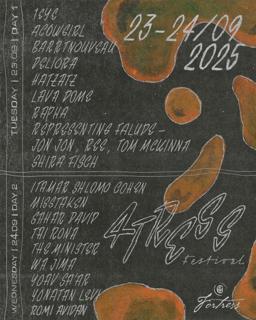 23-24/09
2025
TUESDAY | 23.09 | DAY 1
1EYE
ACOWGIRL
BARRTNOUVEAU
DELIORA
HATZATZ
LAVA DOME
RAPHA
REPRESENTING FALUDE –
JON JON, REE, TOM MCKINNA
SHIRA FISCH
WEDNESDAY | 24.09 | DAY 2
ITAMAR SHLOMO COHEN
MISSTAKEN
SAHAR DAVID
TAI RONA
THE MINISTER
WA JIMA
YOAV SA'AR
YONATAN LEVI
ROMI AVIDAN
4TRESS
festival
Fortress